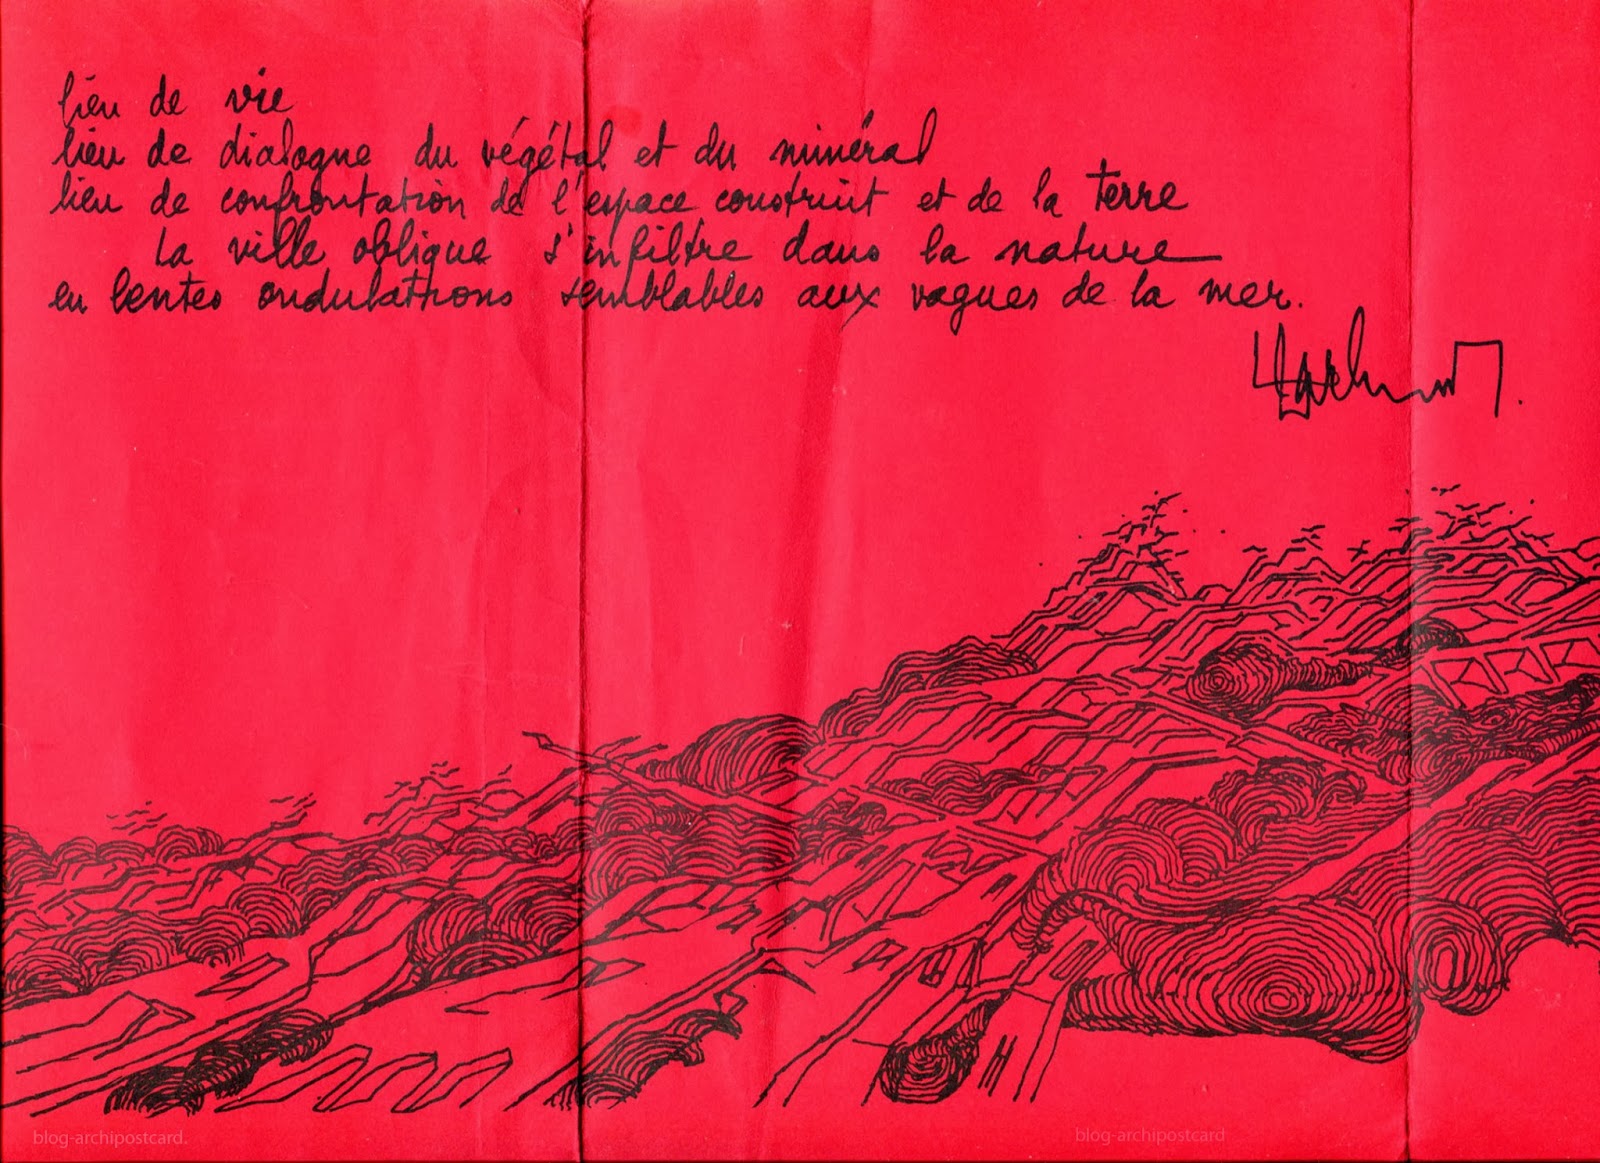 lieu de vie
lieu de dialogue du végétal et du minéral
lieu de confrontation de l'espace construit et de la terre
La ville oblique s'infiltre dans la nature
en lentes ondulations semblables aux vagues de la mer.
blog-archipostcard.
blog-archipostcard